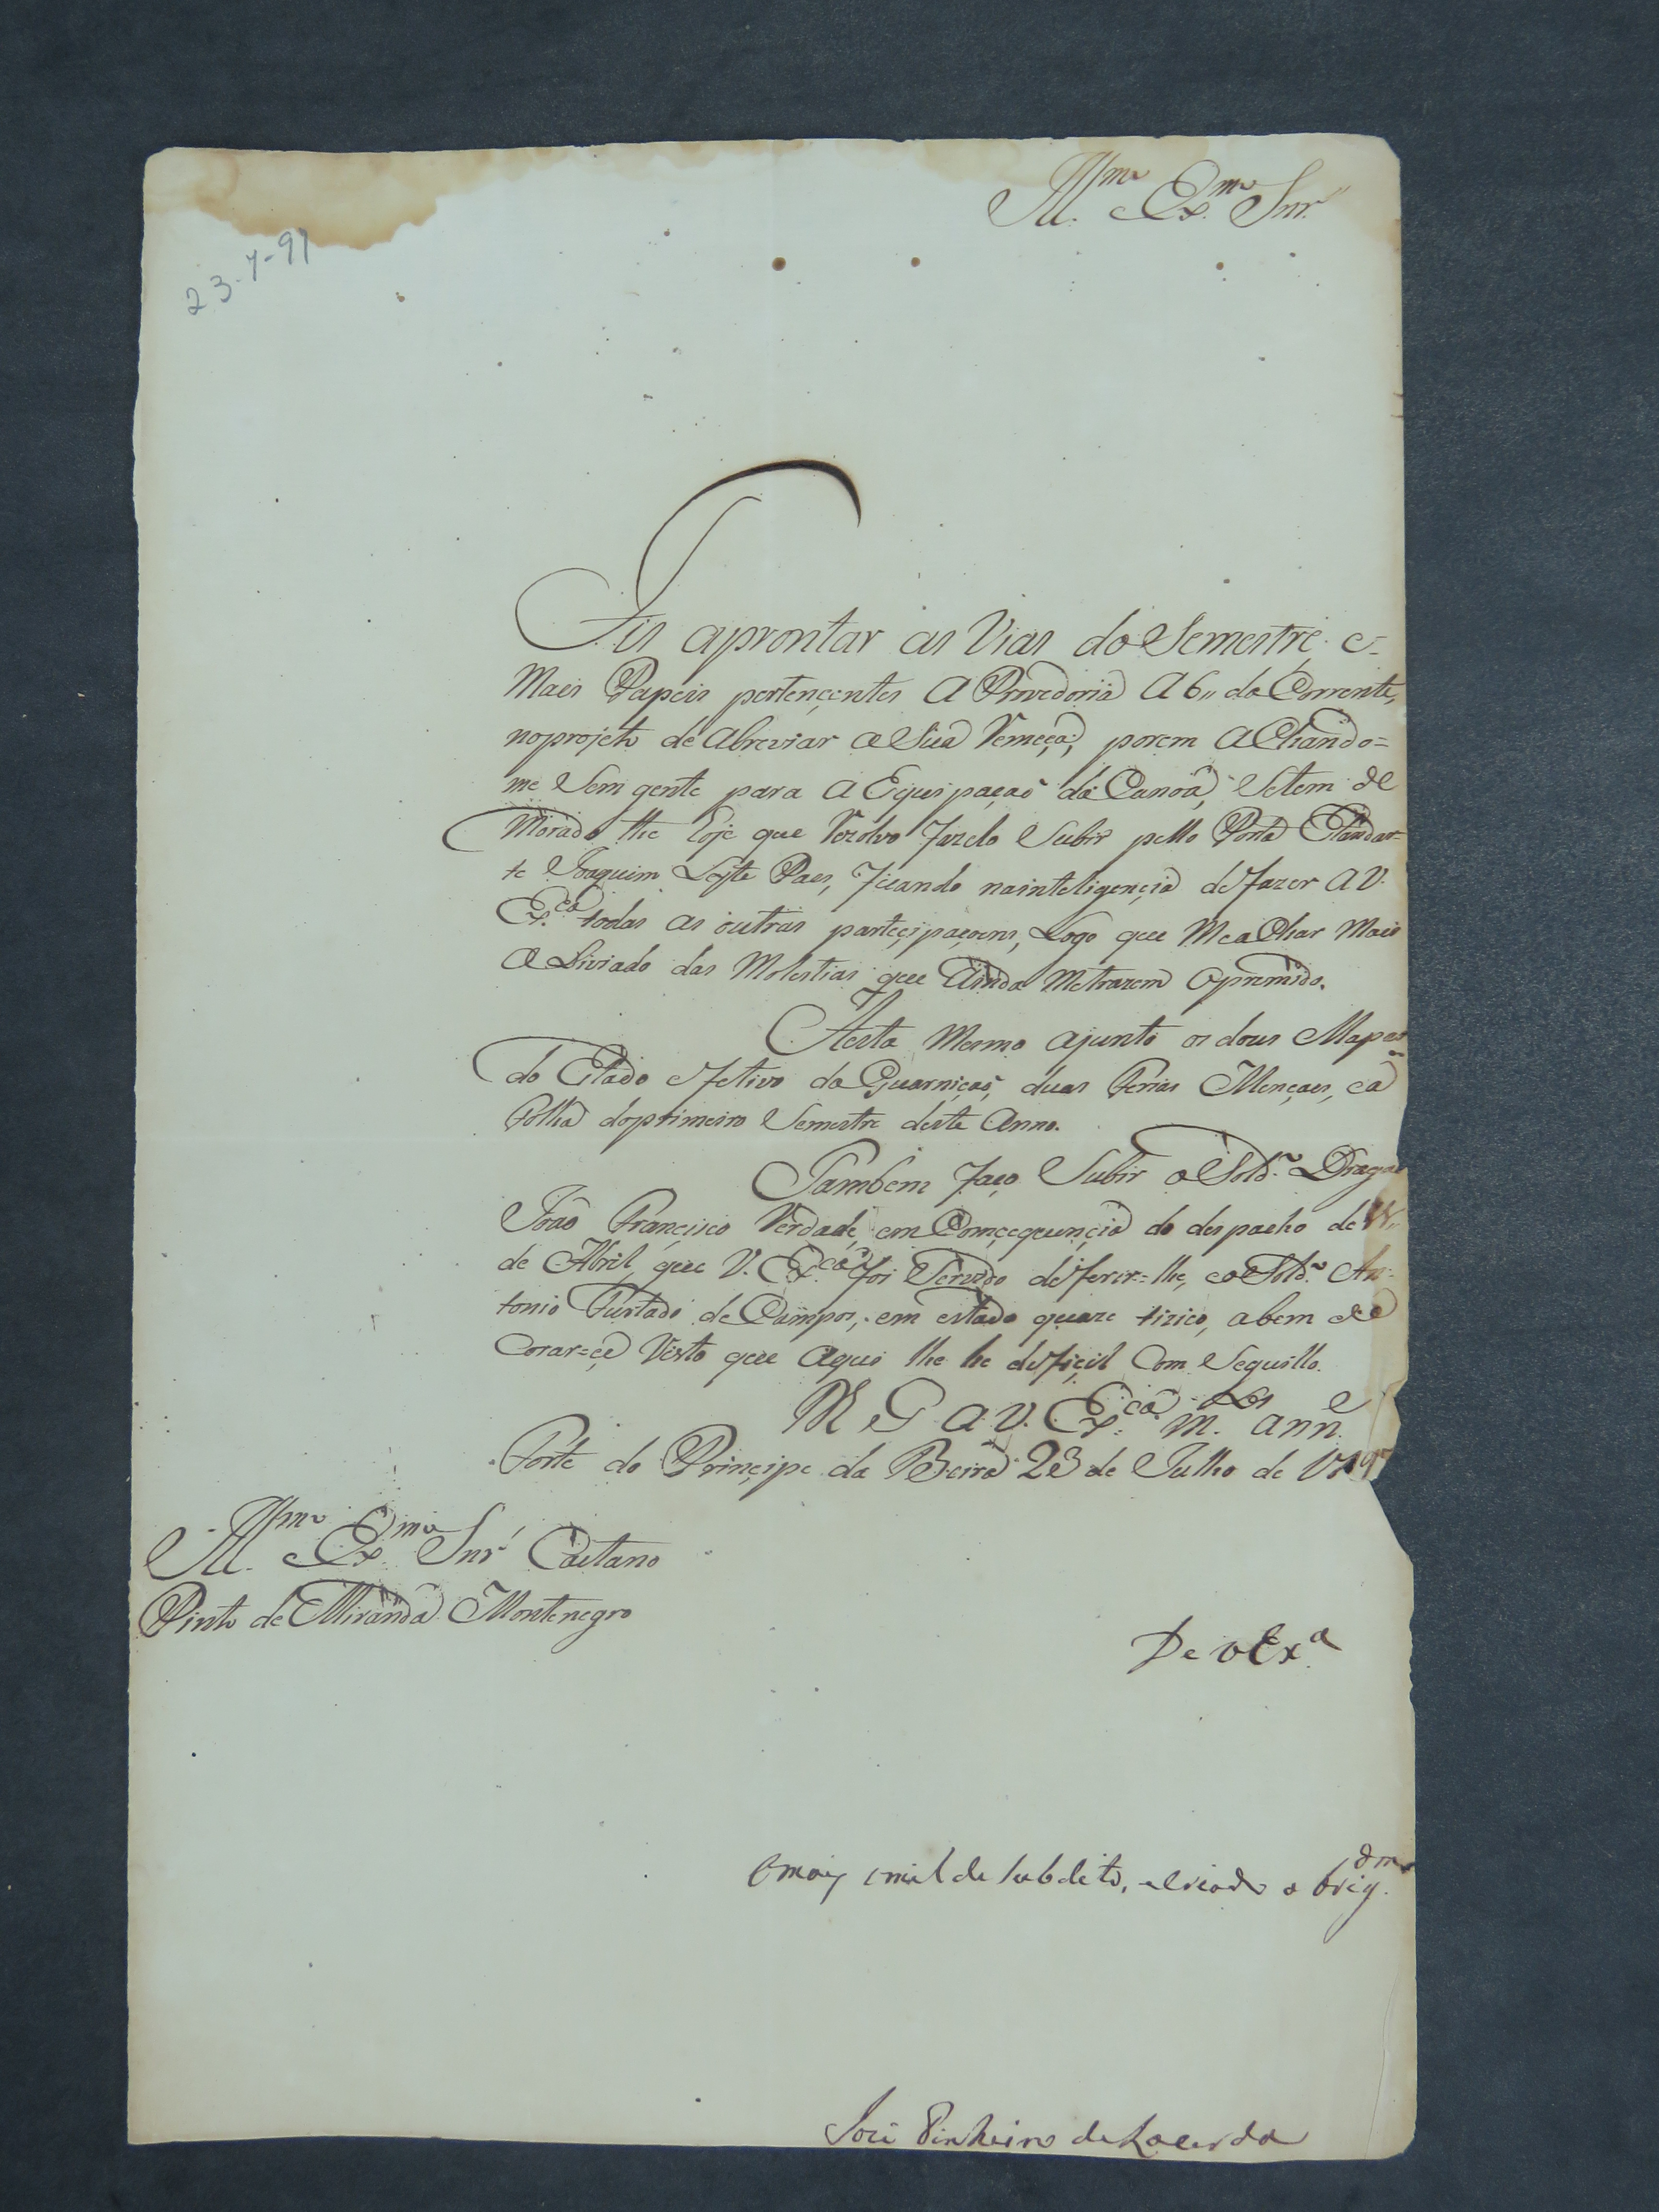 Ill.mo Ex.mo Snr.
23-7-97
Fis aprontar as Vias do Semestre e=
Mais Papeis pertençentes a Provedoria a 6,, do Corrente,
no projeto de abreviar a Sua Remeça; porem achando=
me Sem gente para a Equipaçaõ da Canoa, Setem de
Morado the hoje que Rezolvo fazelo Subir pello Porta Estandar=
te Joaquim Leyte Paes, ficando na inteligençia de fazer a V.
Ex.cia todas as outras parteçipaçoens, Logo que Me achar Mais
aLiviado das Molestias que ainda Me trazem Opremido.
Nesta Mesmo ajunto os dous Mapas
do Estado efetivo da Guarniçaõ, duas Ferias Mençaes, e a
Folha do primeiro Semestre deste Anno.
Tambem faço Subir o Sold.o Dragaõ
Joaõ Françisco Verdade, em Comçequençia do despacho de
de Abril, que V. Ex.cia foi Servido deferir=lhe, e o Sold.o An=
tonio Furtado de Campos, em estado quaze tizico, a bem de
Corar=çe Visto que aqui lhe he defiçil Com Seguillo.
D.s G. a V. Ex.cia m.tos ann.s
Forte do Prinçipe da Beira 23 de Julho de 1797
Ill.mo Ex.mo Snr. Caetano
Pinto de Miranda Montenegro
De V Ex.a
O mais umilde Subdito, e Criado o brig.dmo
José Pinheiro de Lacerda